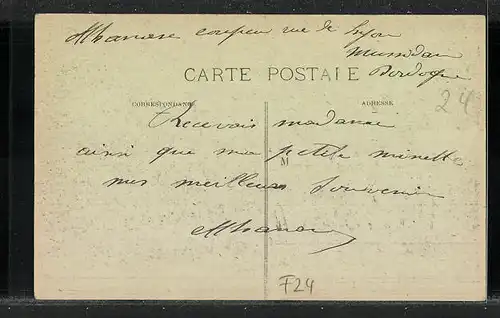 Athanase coupeur rue de Lyon
Mussidan
Dordogne
CARTE POSTALE
24
CORRESPONDANCE
ADRESSE
Recevois madame
ainsi que ma petite minette
M
mes meilleurs Souvenir
Athanase
F24